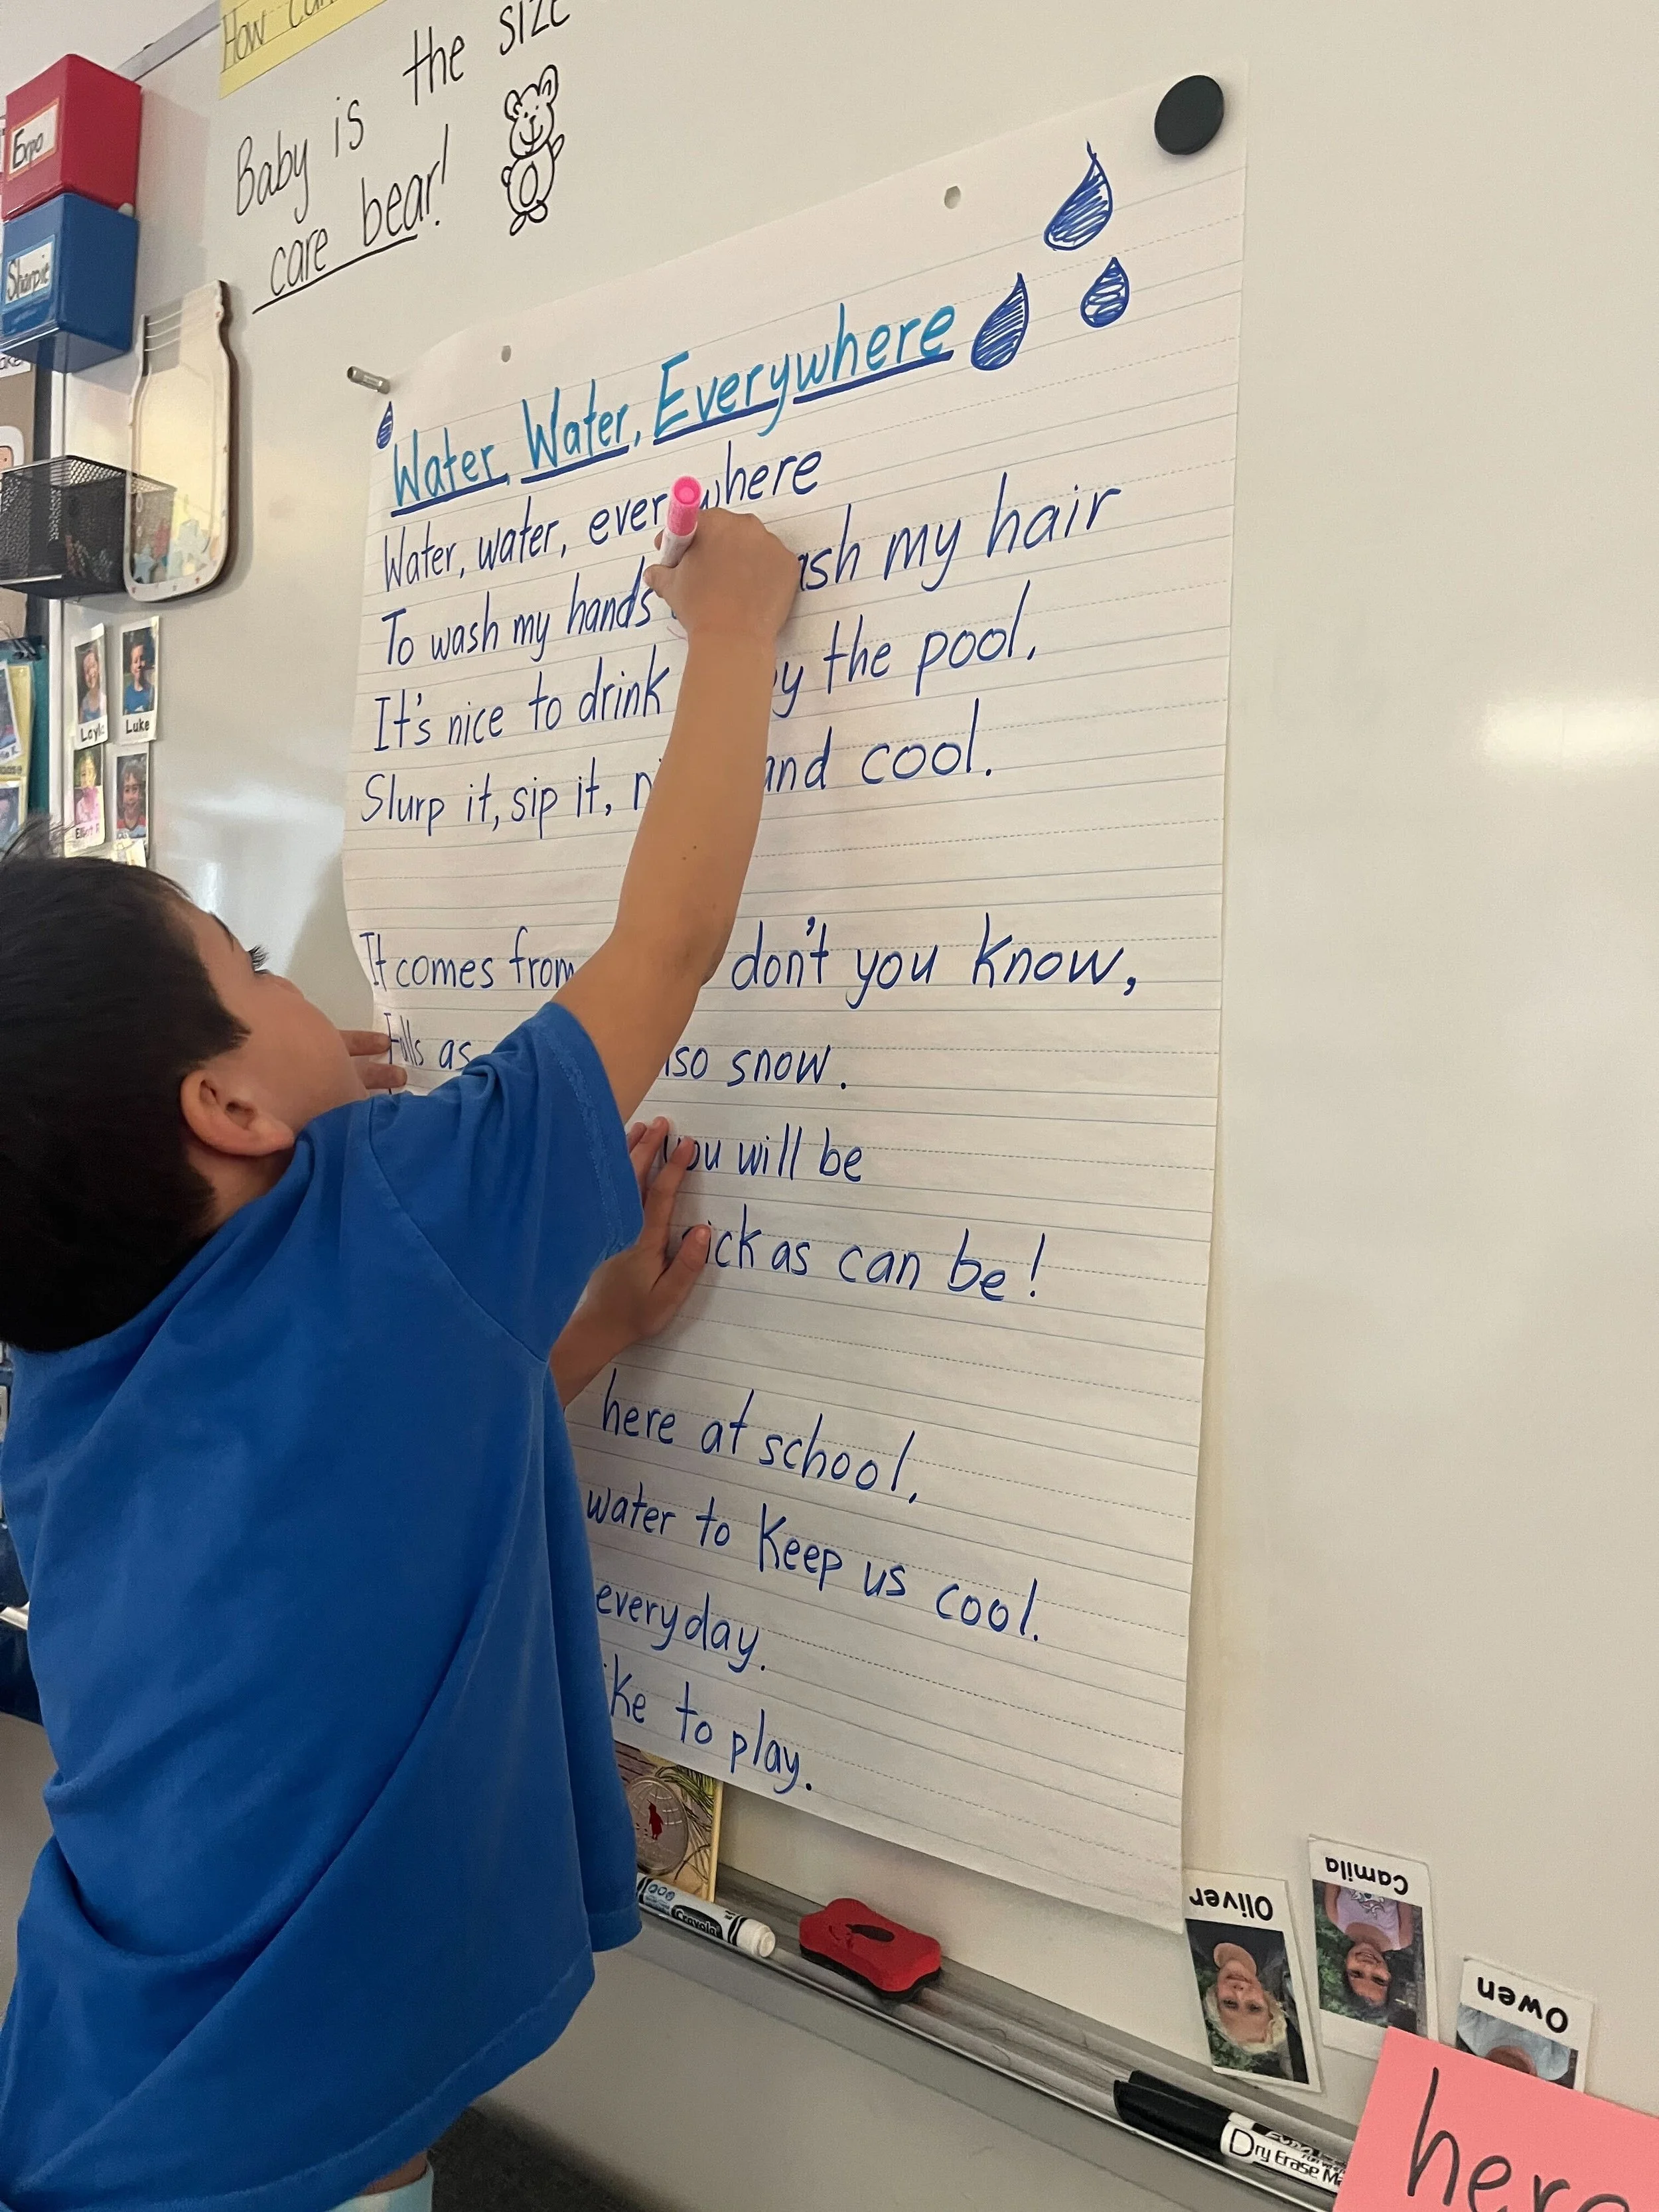 How can
Baby is the size
care bear!
Expo
Sharpie
Layla
Luke
Water, Water, Everywhere
Water, water, everywhere
To wash my hands ash my hair
It's nice to drink by the pool.
Slurp it, sip it, and cool.
It comes from don't you know,
Falls as also snow.
you will be
sick as can be!
here at school.
water to keep us cool.
everyday.
like to play.
Crayola
Oliver
Camila
Owen
Dry Erase
here